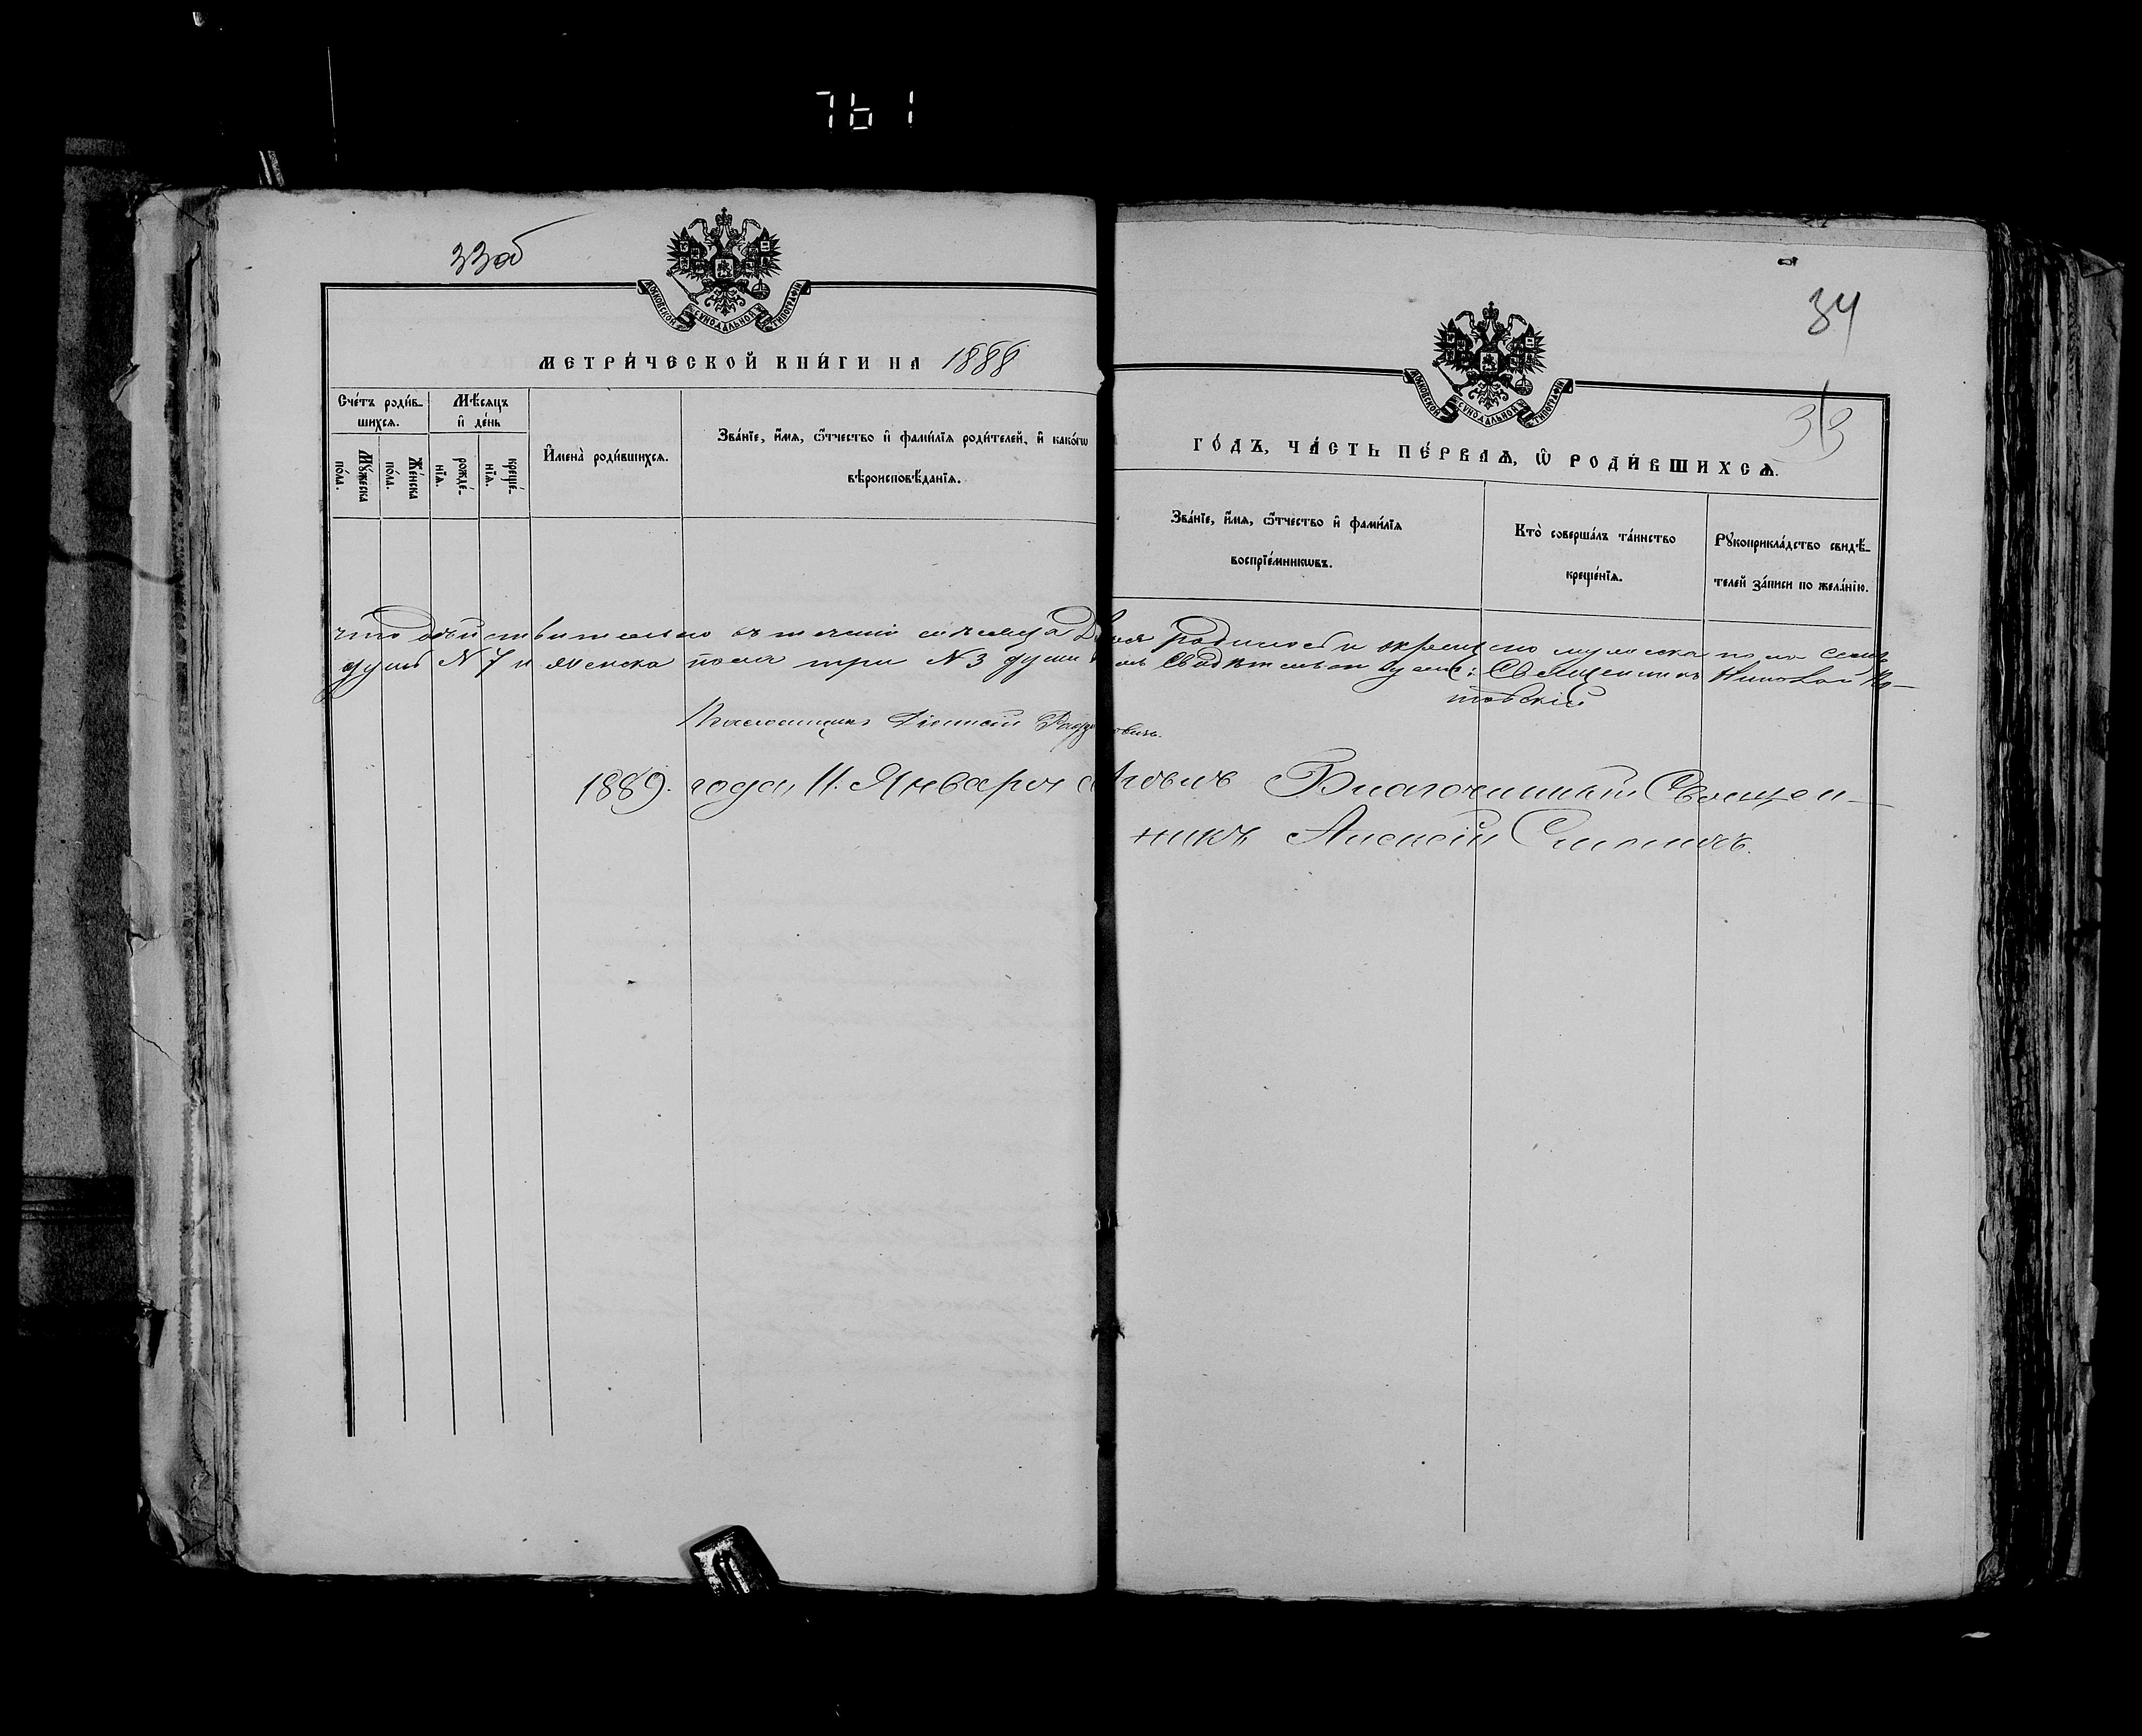 761
33об
МОСКОВСКОЙ СѴНОДАЛЬНОЙ ТИПОГРАФІИ
МЕТРИ́ЧЕСКОЙ КНИ́ГИ НА 1888
Сче́тъ роди́в-
шихсѧ.
Мѣ́сяцъ
и҆ де́нь
Мꙋ́жеска
по́ла.
Же́нска
по́ла.
рожде́-
нїѧ.
креще́-
нїѧ.
И҆мена̀ роди́вшихсѧ.
Зва́нїе, и҆́мѧ, ѻ҆́тчество и҆ фами́лїѧ роди́телей, и҆ како́гѡ
вѣроисповѣ́данїѧ.
34
33
МОСКОВСКОЙ СѴНОДАЛЬНОЙ ТИПОГРАФІИ
ГО́ДЪ, ЧА́СТЬ ПЕ́РВАѦ, Ѡ҆ РОДИ́ВШИХСѦ.
Зва́нїе, и҆́мѧ, ѻ҆́тчество и҆ фами́лїѧ
воспрїе́мникѡвъ.
Кто̀ соверша́лъ та́инство
креще́нїѧ.
Рꙋкоприкла́дство свидѣ́-
телей за́писи по жела́нїю.
что действительно въ теченіи сего месяца родилось и окрещено мужеска пола семь
душъ N 7 и женска пола три N 3 души въ томъ свидетельствуемъ: Священникъ Николай Ко-
товскій
Псаломщикъ Діонисій
1889. года, 11. Января Благочинный Священ-
никъ Алексій